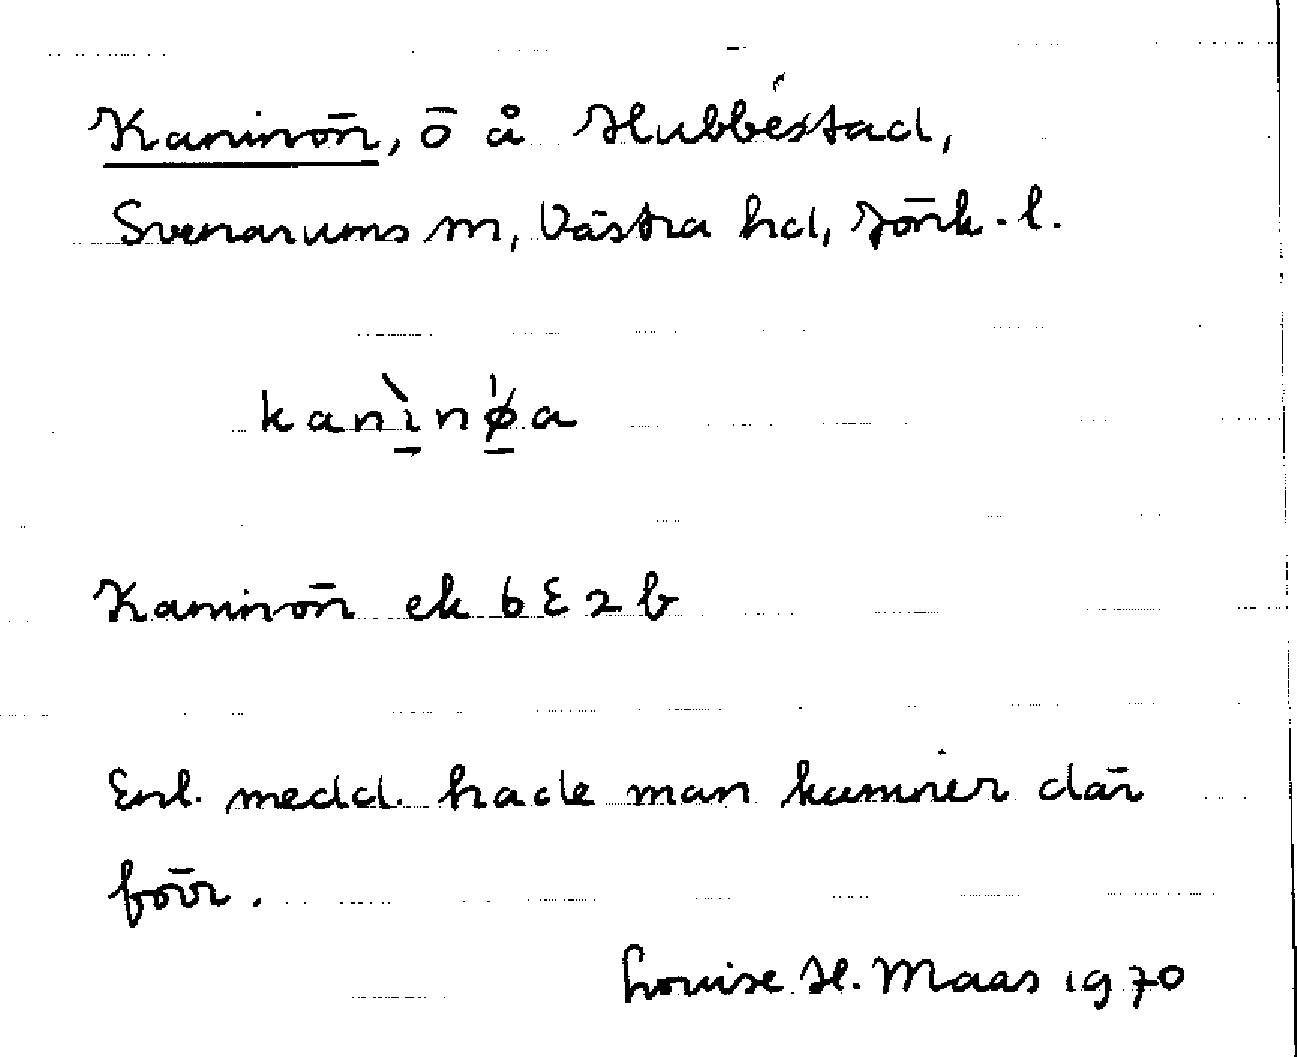 Kaninön, ö å Hubbestad,
Svenarums sn, Västra hd, Jönk. l.
kanìnø̍a
Kaninön ek 6E2b
Enl. medd. hade man kaniner där
förr.
Louise H. Maas 1970